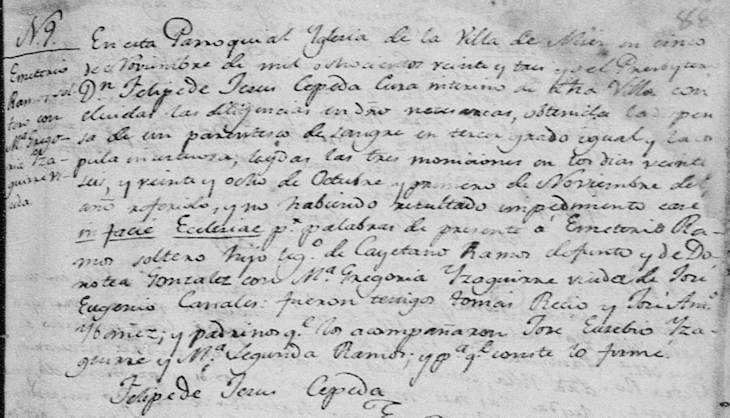 88
N. 9.
Emeterio
Ramos sol-
tero con
Mª. Grego-
ria Yza-
guirre vi-
uda.
En esta Parroquial Yglecia de la Villa de Mier en cinco
de Noviembre de mil ochocientos veinte y tres yo el Presbytero
Dn. Felipe de Jesus Cepeda Cura interino de dha Villa con
cluidas las diligencias en dro necesarias, obtenida la dispen
sa de un parentesco de sangre en tercer grado igual y la co
pula incestuosa; leydas las tres moniciones en los dias veinte
seis, y veinte y ocho de Octubre y primero de Noviembre del
año referido, y no habiendo resultado impedimento casé
in facie Ecclesiae pr. palabras de presente á Emeterio Ra-
mos soltero hijo legº. de Cayetano Ramos defunto y de Do-
rotea Gonzalez con Mª. Gregoria Yzaguirre viuda de José
Eugenio Canales: fueron testigos Tomas Recio y José Antº.
Ybañez; y padrinos qe. los acompañaron José Eusebio Yza-
guirre y Mª. Segunda Ramos; y pª. qe. conste lo firmé.
Felipe de Jesus Cepeda